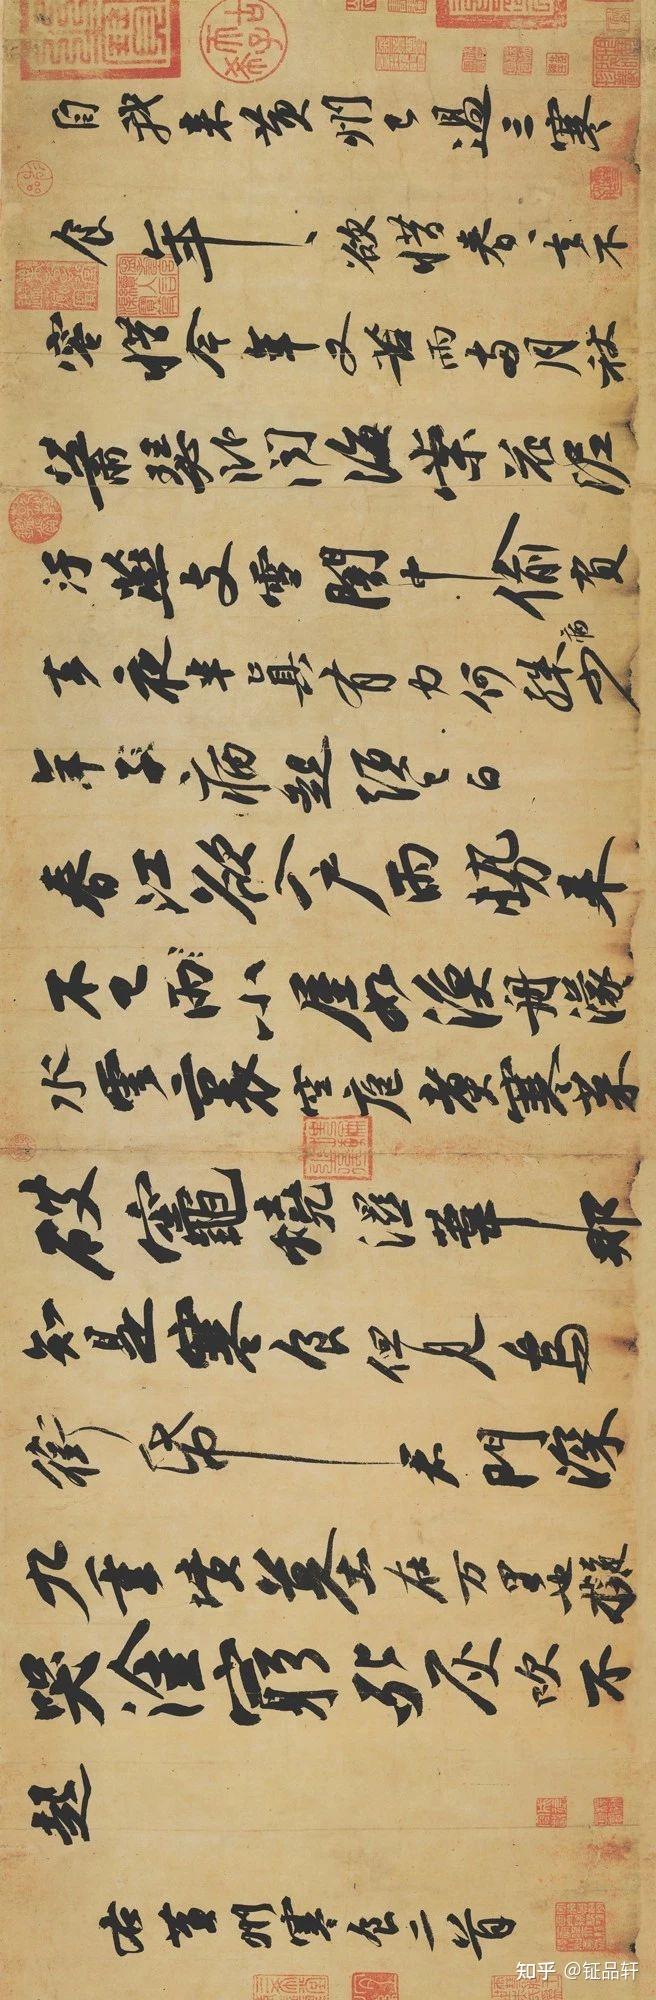 自我来黄州已過三寒
食年〻欲惜春〻去不
容惜今年又苦雨兩月秋
蕭瑟卧聞海棠花泥
汙燕支雪闇中偷負
去夜半真有力何殊病少
年子病起須已白
春江欲入户雨勢来
不已雨小屋如漁舟濛〻
水雲裏空庖煮寒菜
破竈燒濕葦那
知是寒食但見烏
銜帋君門深
九重墳墓在万里也擬
哭塗窮死灰吹不
起
右黄州寒食二首
知乎 @钲品轩